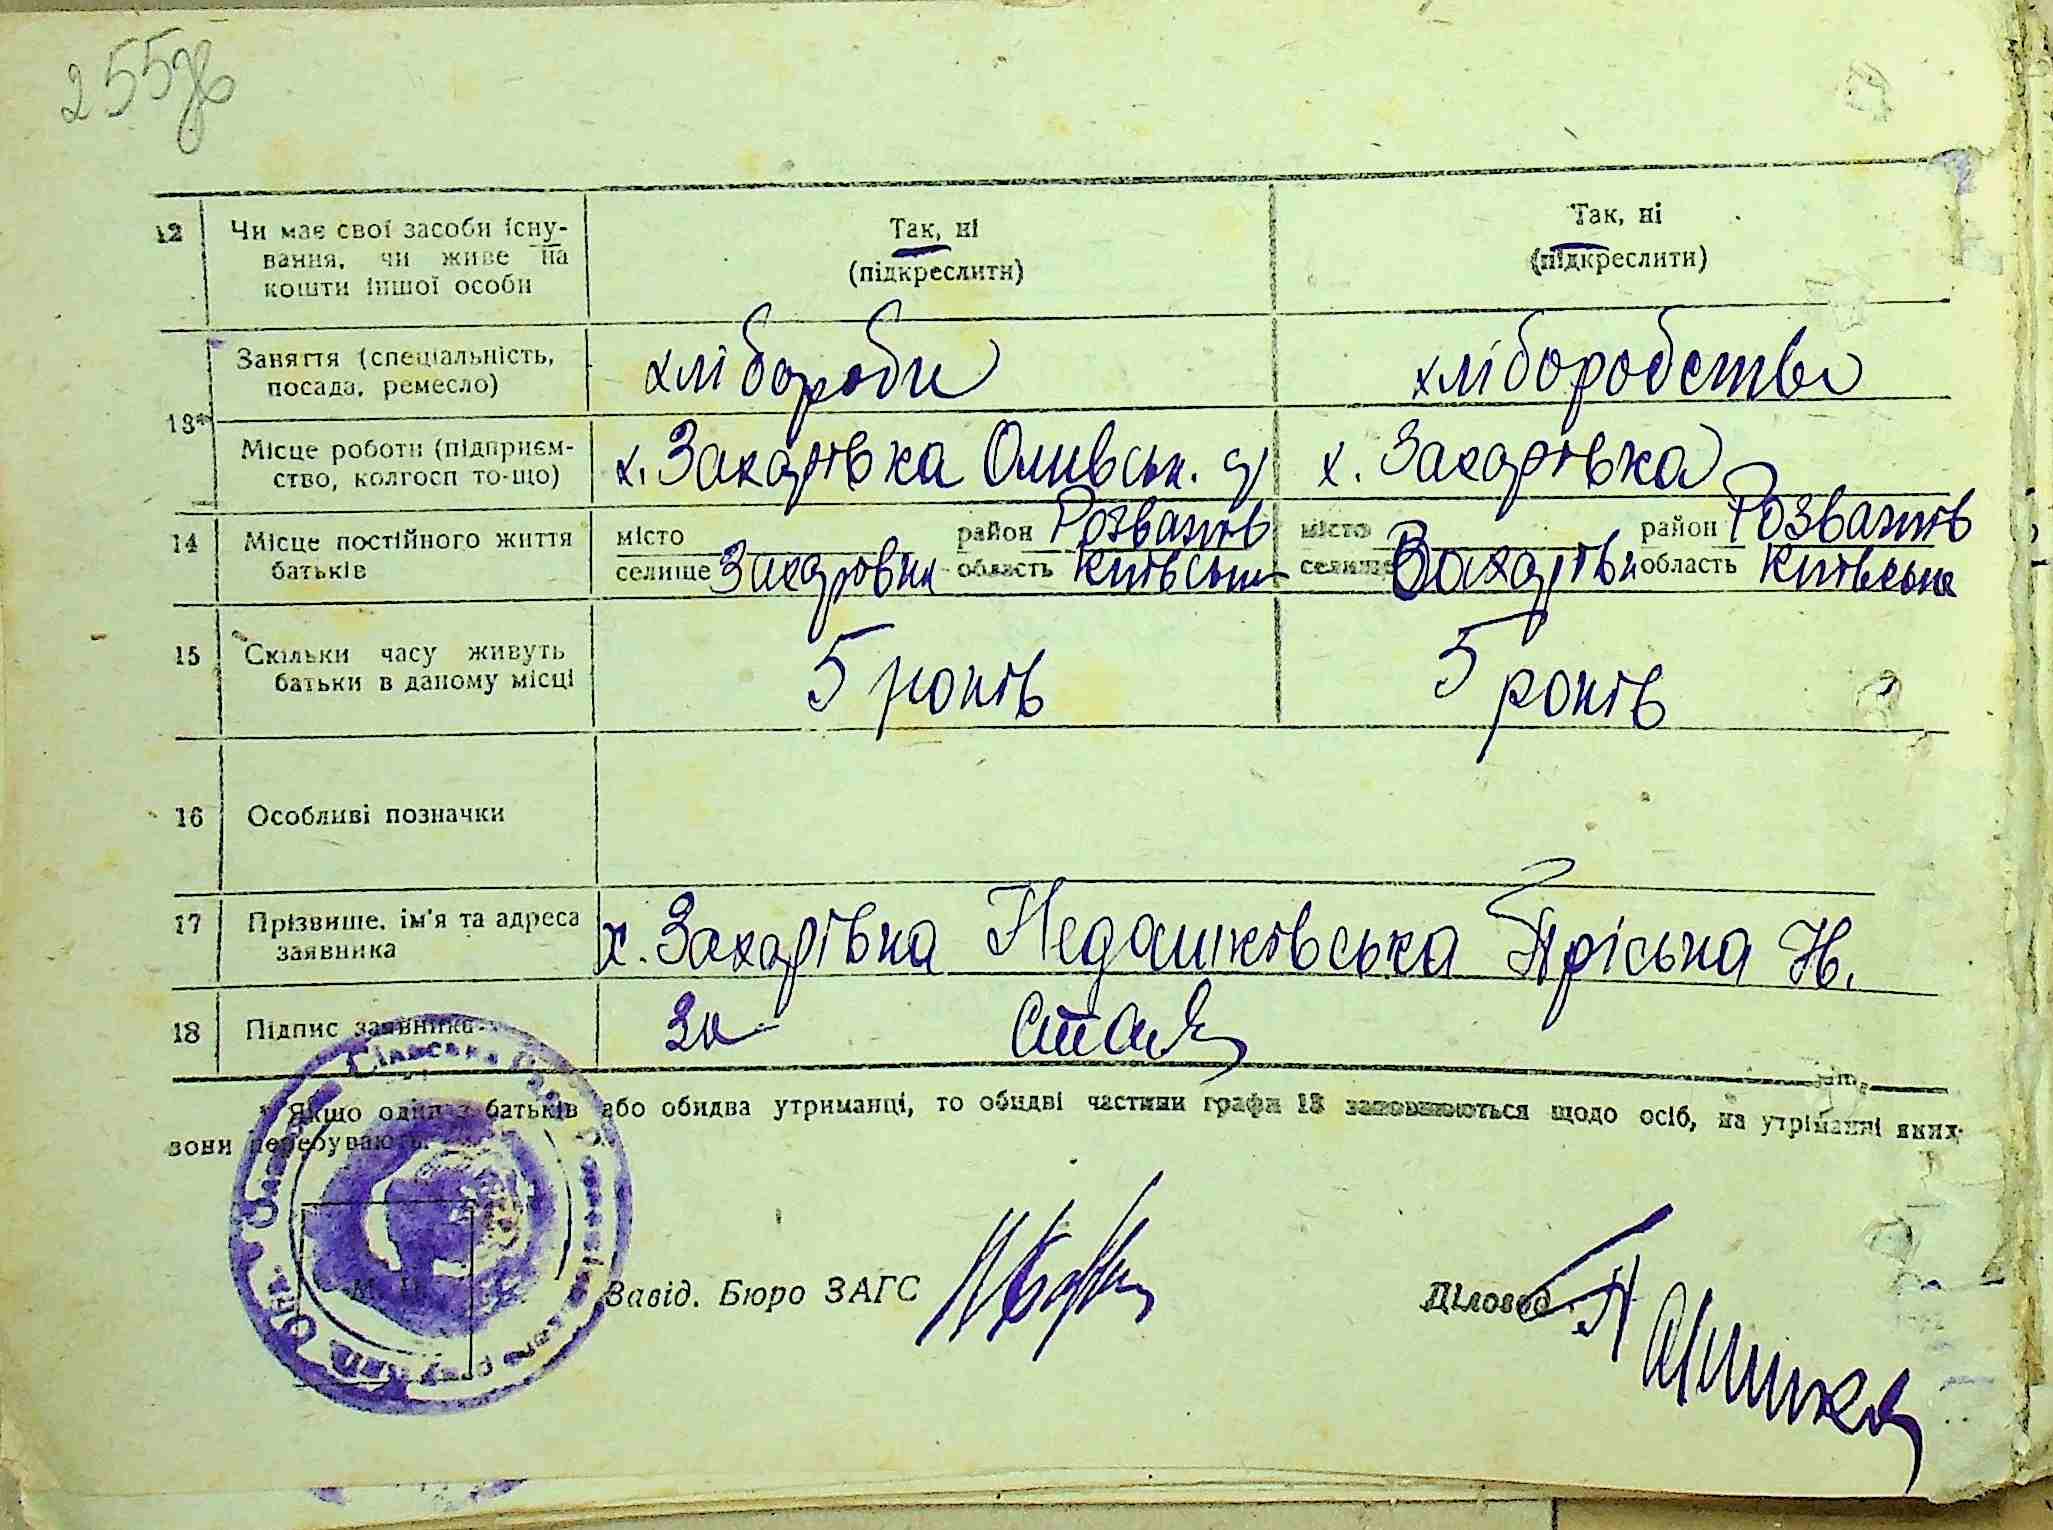 255
12 Чи має свої засоби існу-
вання, чи живе на
кошти іншої особи
Так, ні
(підкреслити)
Так, ні
(підкреслити)
13*
Заняття (спеціальність,
посада, ремесло)
хлібороби
хліборобство
Місце роботи (підприєм-
ство, колгосп то-що)
х. Захарівка
х. Захарівка
14 Місце постійного життя
батьків
місто район Розважів
селище Захаровка область Київська
місто район Розважів
селище область Київська
15 Скільки часу живуть
батьки в даному місці
5 років
5 років
16 Особливі позначки
17 Прізвище, ім'я та адреса
заявника
х. Захарівка Недашківська Пріська Н.
18 Підпис заявника
За
* Якщо один з батьків або обидва утриманці, то обидві частини графи 13 заповнюються щодо осіб, на утріманні яких
вони перебувають.
Сільська Рада
М. П.
Завід. Бюро ЗАГС
Діловод